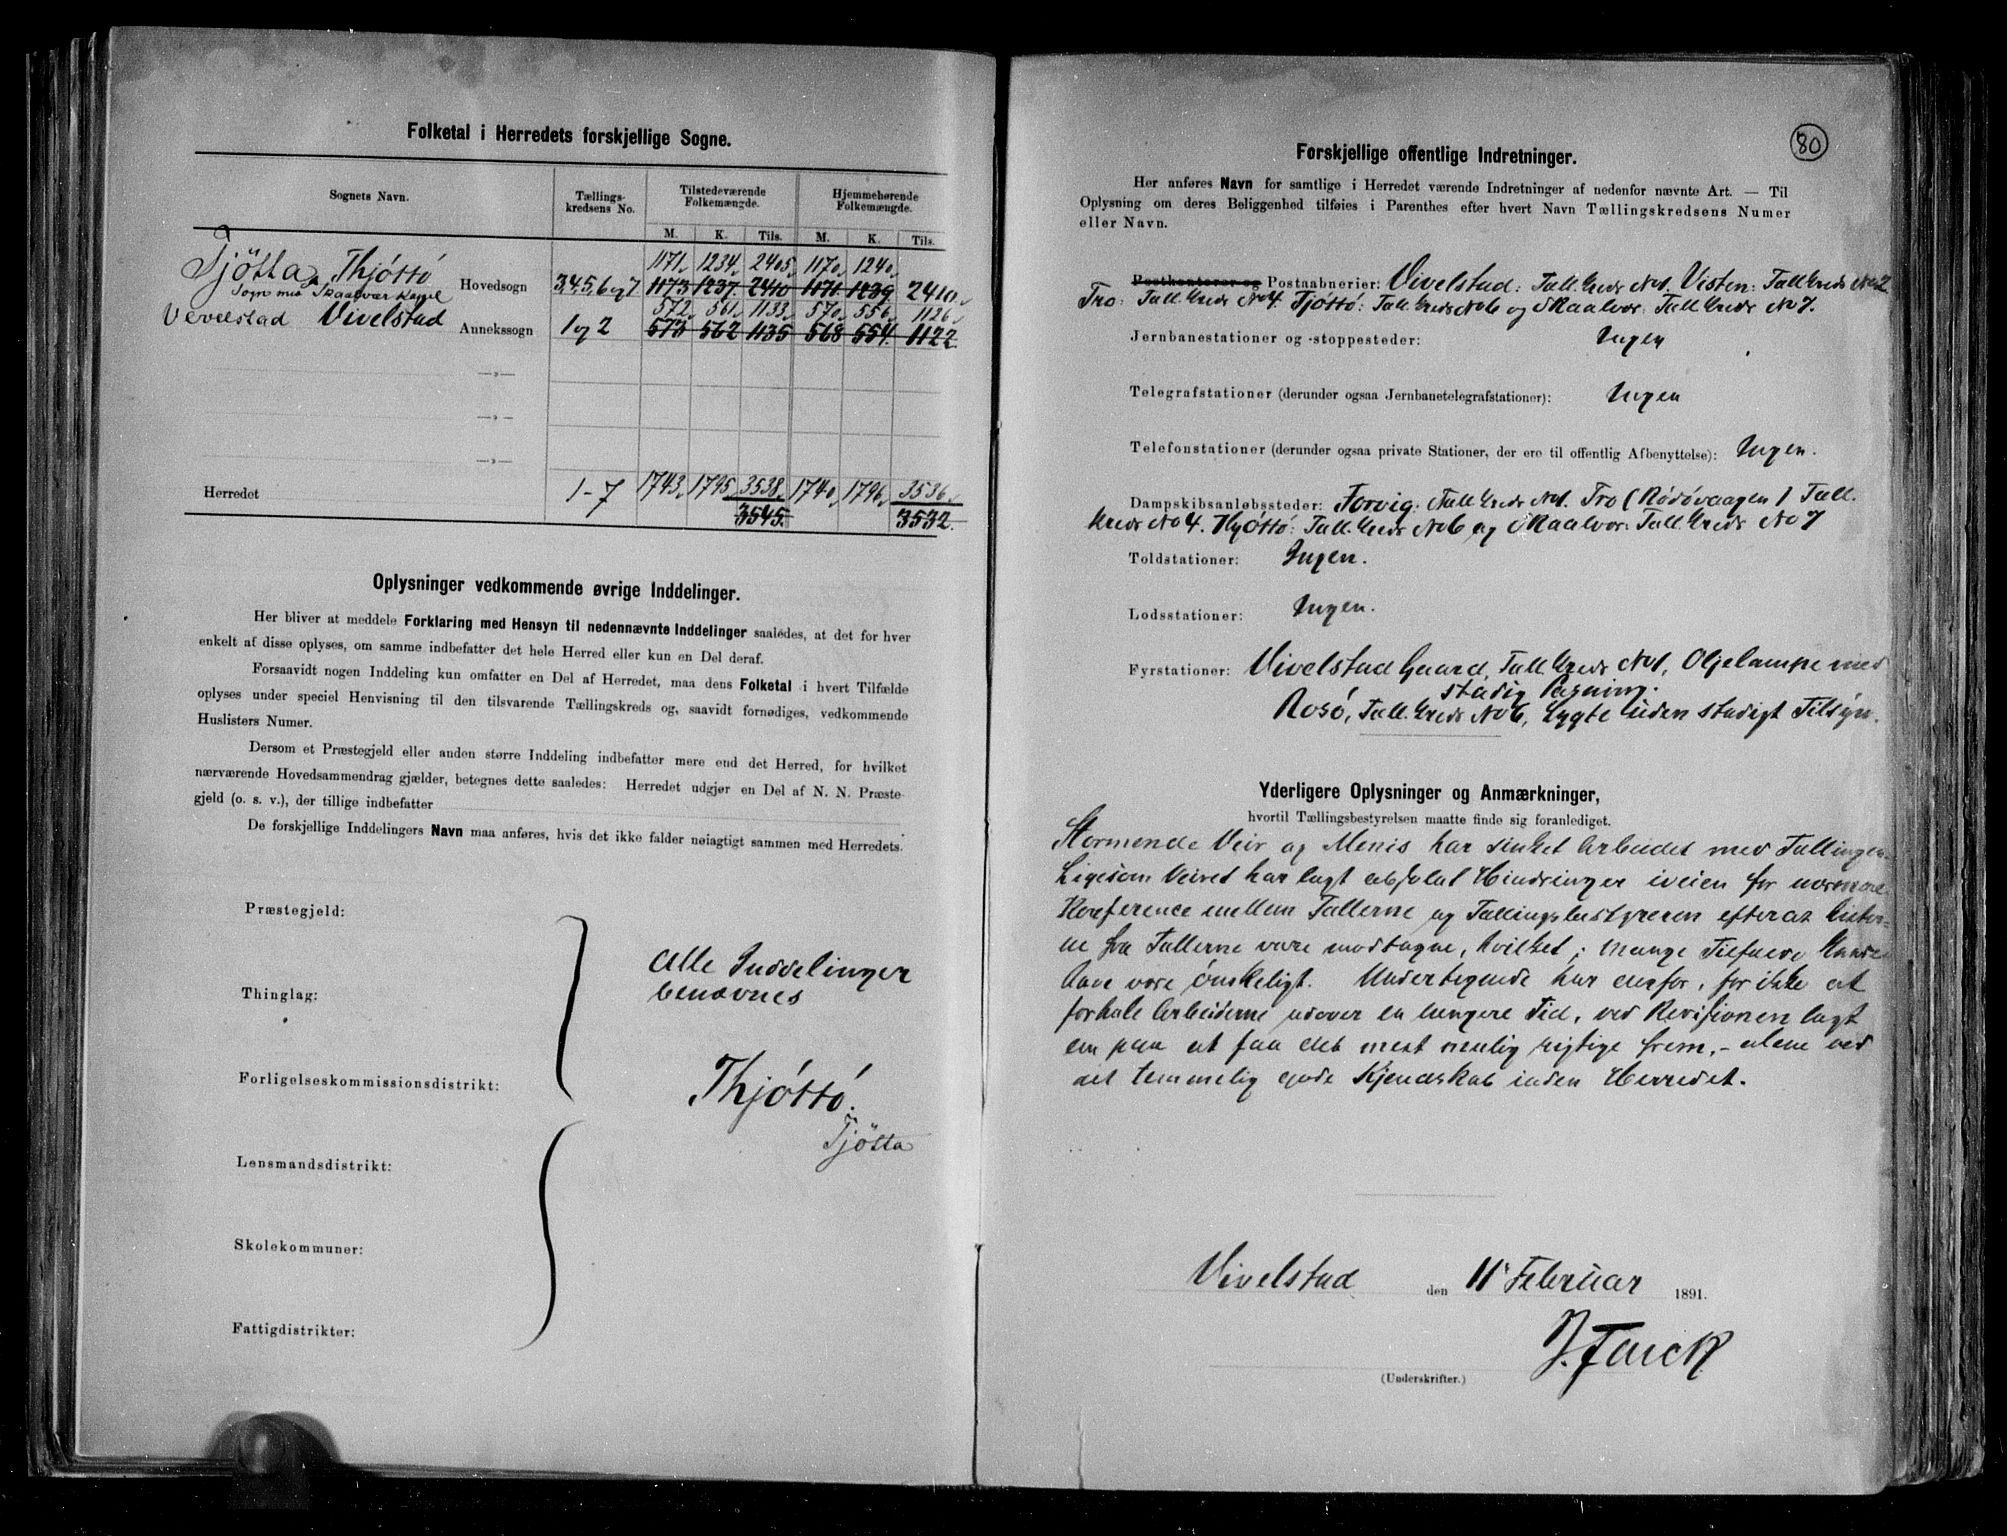 Folketal i Herredets forskjellige Sogne.
Sognets Navn.
Tællings-
kredsens No.
Tilstedeværende
Folkemængde.
Hjemmehørende
Folkemængde.
M. K. Tils. M. K. Tils.
1171 1234 2405 1170 1240
Tjötta Thjöttö Hovedsogn 3,4,5,6 og 7 1173 1237 2410 1171 1239 2410
Sogn med Skaalvær Kapel
572 561 1133 570 556 1126
Vevelstad Vivelstad Annekssogn 1 og 2 573 562 1135 568 554 1122
—„—
—„—
—„—
Herredet 1-7 1743 1795 3538 1740 1796 3536
3545 3532
Oplysninger vedkommende øvrige Inddelinger.
Her bliver at meddele Forklaring med Hensyn til nedennævnte Inddelinger saaledes, at det for hver
enkelt af disse oplyses, om samme indbefatter det hele Herred eller kun en Del deraf.
Forsaavidt nogen Inddeling kun omfatter en Del af Herredet, maa dens Folketal i hvert Tilfælde
oplyses under speciel Henvisning til den tilsvarende Tællingskreds og, saavidt fornødiges, vedkommende
Huslisters Numer.
Dersom et Præstegjeld eller anden større Inddeling indbefatter mere end det Herred, for hvilket
nærværende Hovedsammendrag gjælder, betegnes dette saaledes: Herredet udgjør en Del af N. N. Præste-
gjeld (o. s. v.), der tillige indbefatter
De forskjellige Inddelingers Navn maa anføres, hvis det ikke falder nøiagtigt sammen med Herredets.
Præstegjeld:
Alle Inddelinger
benævnes
Thinglag:
Forligelseskommissionsdistrikt:
Thjöttö.
Tjötta
Lensmandsdistrikt:
Skolekommuner:
Fattigdistrikter:
80
Forskjellige offentlige Indretninger.
Her anføres Navn for samtlige i Herredet værende Indretninger af nedenfor nævnte Art. — Til
Oplysning om deres Beliggenhed tilføies i Parenthes efter hvert Navn Tællingskredsens Numer
eller Navn.
Postkontorer og Postaabnerier: Vivelstad: Tæll. Kreds No 1. Visten: Tæll Kreds No 2
Tro: Tæll. Kreds No 4. Tjöttö: Tæll. Kreds No 6 og Skaalvær: Tæll Kreds No 7.
Jernbanestationer og -stoppesteder: Ingen
Telegrafstationer (derunder ogsaa Jernbanetelegrafstationer): Ingen
Telefonstationer (derunder ogsaa private Stationer, der ere til offentlig Afbenyttelse): Ingen.
Dampskibsanløbssteder: Forvig: Tæll Kreds No 1. Tro (Rødøvaagen) Tæll.
Kreds No 4. Thjöttö: Tæll. Kreds No 6 og Skaalvær: Tæll. Kreds No 7
Toldstationer: Ingen.
Lodsstationer: Ingen.
Fyrstationer: Vivelstad Gaard, Tæll Kreds No 1, Oljelampe med
stadig Pasning.
Rosö, Tæll. Kreds No 6, Lygte uden stadigt Tilsyn.
Yderligere Oplysninger og Anmærkninger,
hvortil Tællingsbestyrelsen maatte finde sig foranlediget.
Stormende Veir og Menis har sinket Arbeidet med Tællingen.
Ligesom Veiret har lagt absolut Hindringer iveien for nærmere
Konference mellem Tællerne og Tællingsbestyreren efterat Lister-
ne fra Tællerne vare modtagne, hvilket i mange Tilfælde kunde
have være önskeligt. Undertegnede har derfor, for ikke at
forhale Arbeiderne udover en længere Tid, ved Revisionen lagt
em paa at faa det mest mulig rigtige frem, – alene ved
det temmelig gode Kjendskab inden Herredet.
Vivelstad den 11 Februar 1891.
J. Falck
(Underskrifter.)